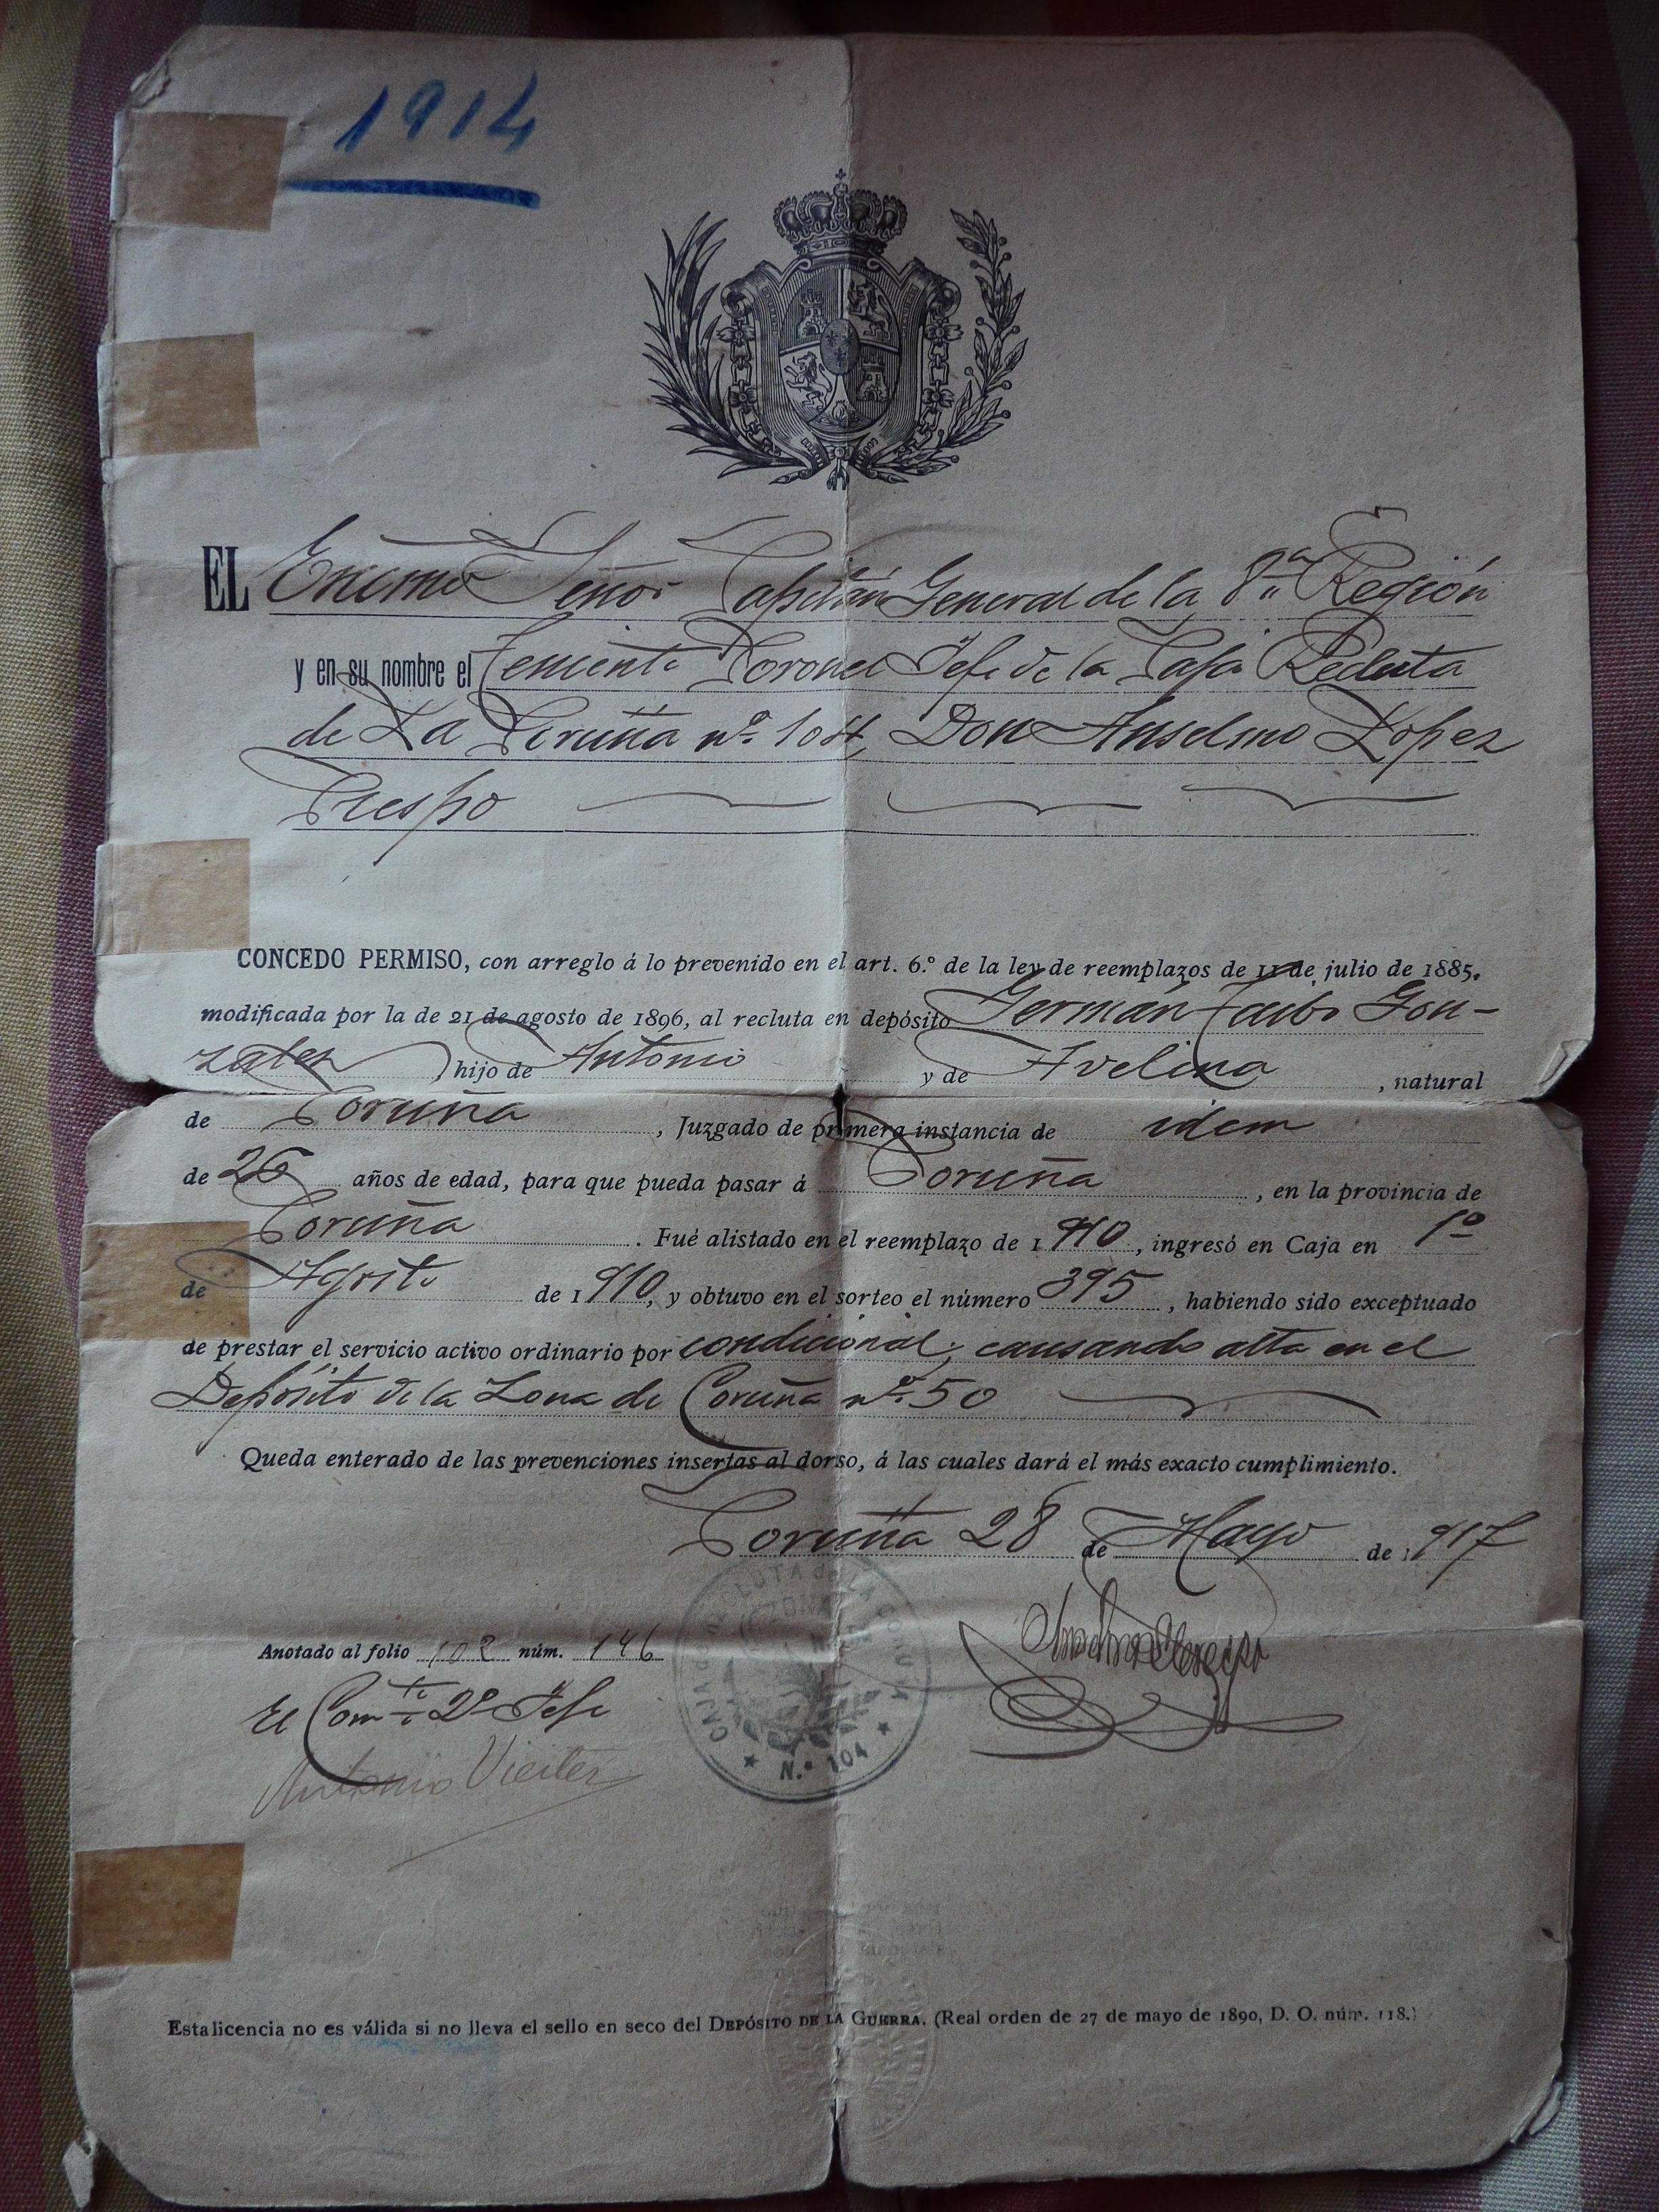 1914
EL Excmo Señor Capitán General de la 8ª Región
y en su nombre el Teniente Coronel Jefe de la Caja Recluta
de La Coruña nº 104, Don Anselmo Lopez
Crespo
CONCEDO PERMISO, con arreglo á lo prevenido en el art. 6.º de la ley de reemplazos de 11 de julio de 1885,
modificada por la de 21 de agosto de 1896, al recluta en depósito Germán Taibo Gon-
zalez, hijo de Antonio y de Avelina, natural
de Coruña, Juzgado de primera instancia de idem
de 26 años de edad, para que pueda pasar á Coruña, en la provincia de
Coruña. Fué alistado en el reemplazo de 1910, ingresó en Caja en 1º
de Agosto de 1910, y obtuvo en el sorteo el número 395, habiendo sido exceptuado
de prestar el servicio activo ordinario por condicional, causando alta en el
Depósito de la Zona de Coruña nº 50
Queda enterado de las prevenciones insertas al dorso, á las cuales dará el más exacto cumplimiento.
Coruña 28 de Mayo de 1917
Anotado al folio 102 núm. 146
El Comte 2º Jefe
Antonio Vieitez
CAJA DE RECLUTA de LA CORUÑA
N.º 104
Esta licencia no es válida si no lleva el sello en seco del DEPÓSITO DE LA GUERRA. (Real orden de 27 de mayo de 1890, D. O. núm. 118.)